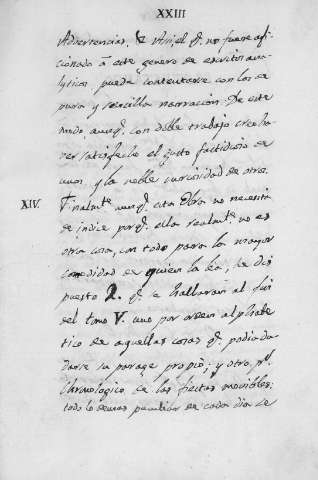 XXIII
Advertencias. Y Aquel q. no fuere afi-
cionado à este genero de escritos ana-
lyticos puede contentarse con la
pura y sencilla narracion. De este
modo aunq. con doble trabajo creo ha-
ver satisfecho el gusto fastidioso de
unos, y la noble curiosidad de otros.
XIV. Finalmte. aunq. esta Obra no necesita
de indice porq. ella realmte. no es
otra cosa, con todo para la mayor
comodidad de quien la lea, he dis
puesto 2. q. se hallaràn al fin
del tomo V. uno por orden alphabe
tico de aquellas cosas q. podia du
darse su parage propio; y otro pr.
Chronologico de las fiestas movibles:
todo lo demas peculiar de cada dia se